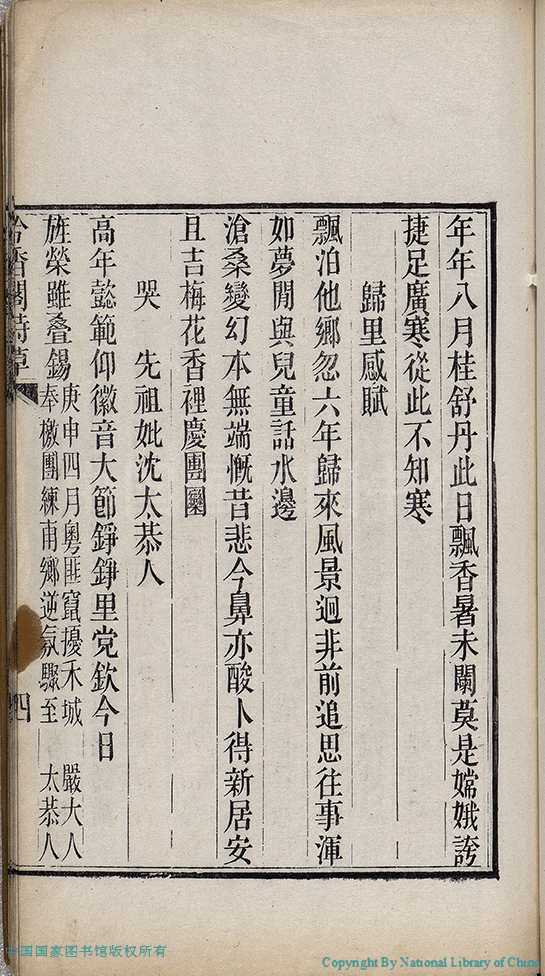 年年八月桂舒丹此日飄香暑未闌莫是嫦娥誇
捷足廣寒從此不知寒
歸里感賦
飄泊他鄉忽六年歸來風景迥非前追思往事渾
如夢閒與兒童話水邊
滄桑變幻本無端慨昔悲今鼻亦酸卜得新居安
且吉梅花香裡慶團圞
哭 先祖妣沈太恭人
高年懿範仰徽音大節錚錚里党欽今日
旌榮雖疊錫
庚申四月粵匪竄擾禾城 嚴大人
奉檄團練甫鄉逆氛驟至 太恭人
冷香閣詩草
四
中国国家图书馆版权所有
Copyright By National Library of China